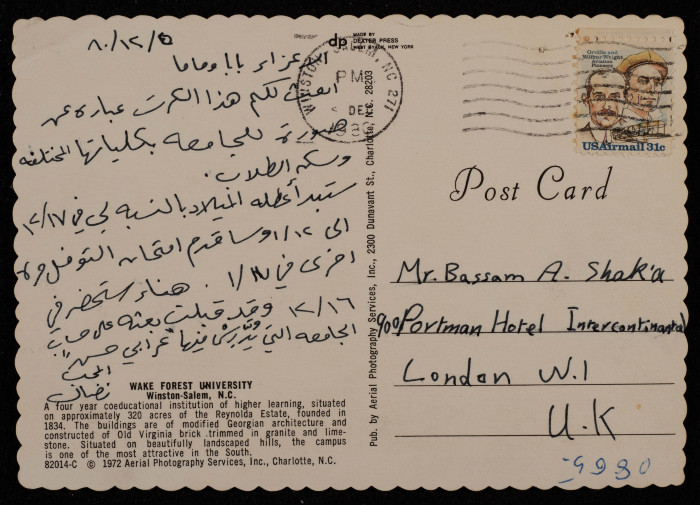 ٨٠/١٢/٥
الاعزاء بابا وماما
ابعث لكم هذا الكرت عبارة عن
صورة للجامعه بكلياتها المختلفه
وسكن الطلاب.
ستبدأ عطله الميلاد بالنسبه لي في ١٢/١٧
الى ١/١٢ وساقدم امتحان التوفل مرة
اخرى في ١/١٧. هناء ستحضر في
١٢/١٦ وقد قبلت بعثه على حساب
الجامعه التي يُدَرِّسْ فيها عرابي حسن"
المحب
نضال
WAKE FOREST UNIVERSITY
Winston-Salem, N.C.
A four year coeducational institution of higher learning, situated
on approximately 320 acres of the Reynolda Estate, founded in
1834. The buildings are of modified Georgian architecture and
constructed of Old Virginia brick trimmed in granite and lime-
stone. Situated on beautifully landscaped hills, the campus
is one of the most attractive in the South.
82014-C © 1972 Aerial Photography Services, Inc., Charlotte, N.C.
dp MADE BY
DEXTER PRESS
WEST NYACK, NEW YORK
Pub. by Aerial Photography Services, Inc., 2300 Dunavant St., Charlotte, N.C. 28203
WINSTON SALEM, NC 271
PM
DEC
Orville and
Wilbur Wright
Aviation
Pioneers
USAirmail 31c
Post Card
Mr. Bassam A. Shak'a
900 Portman Hotel Intercontinental
London W.1
U.K